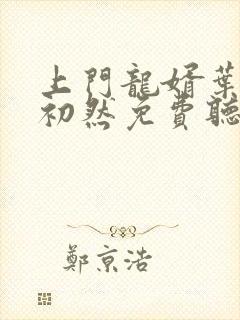 上門龍婿葉
初然免費聽
鄭京浩